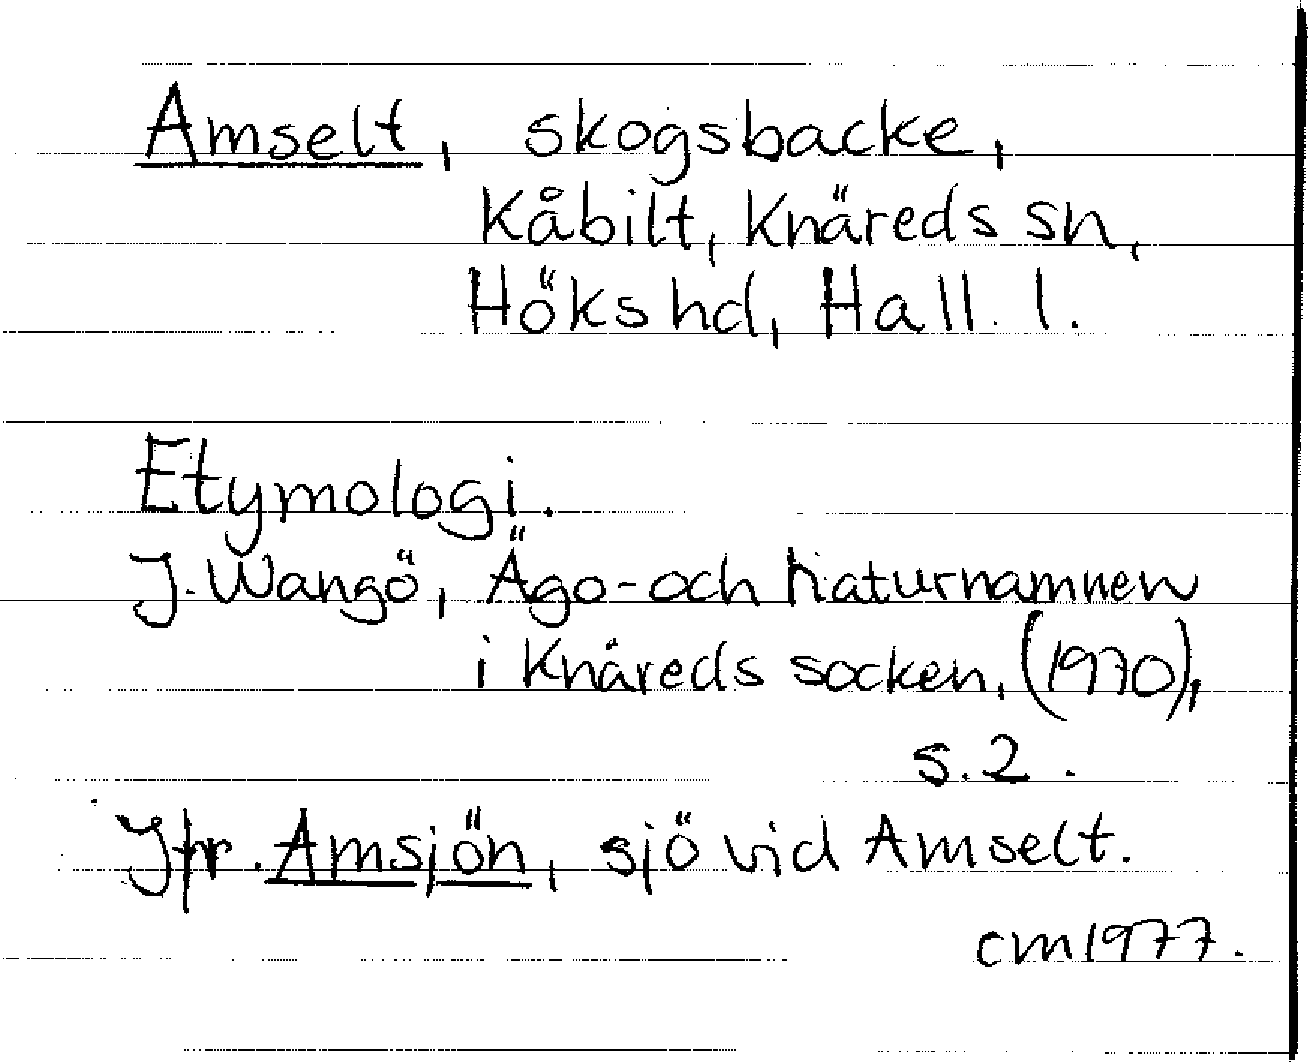 Amselt, skogsbacke,
Kåbilt, Knäreds sn,
Höks hd, Hall. l.
Etymologi.
J. Wangö, Ägo- och naturnamnen
i Knäreds socken, (1970),
s. 2.
Jfr. Amsjön, sjö vid Amselt.
cm 1977.